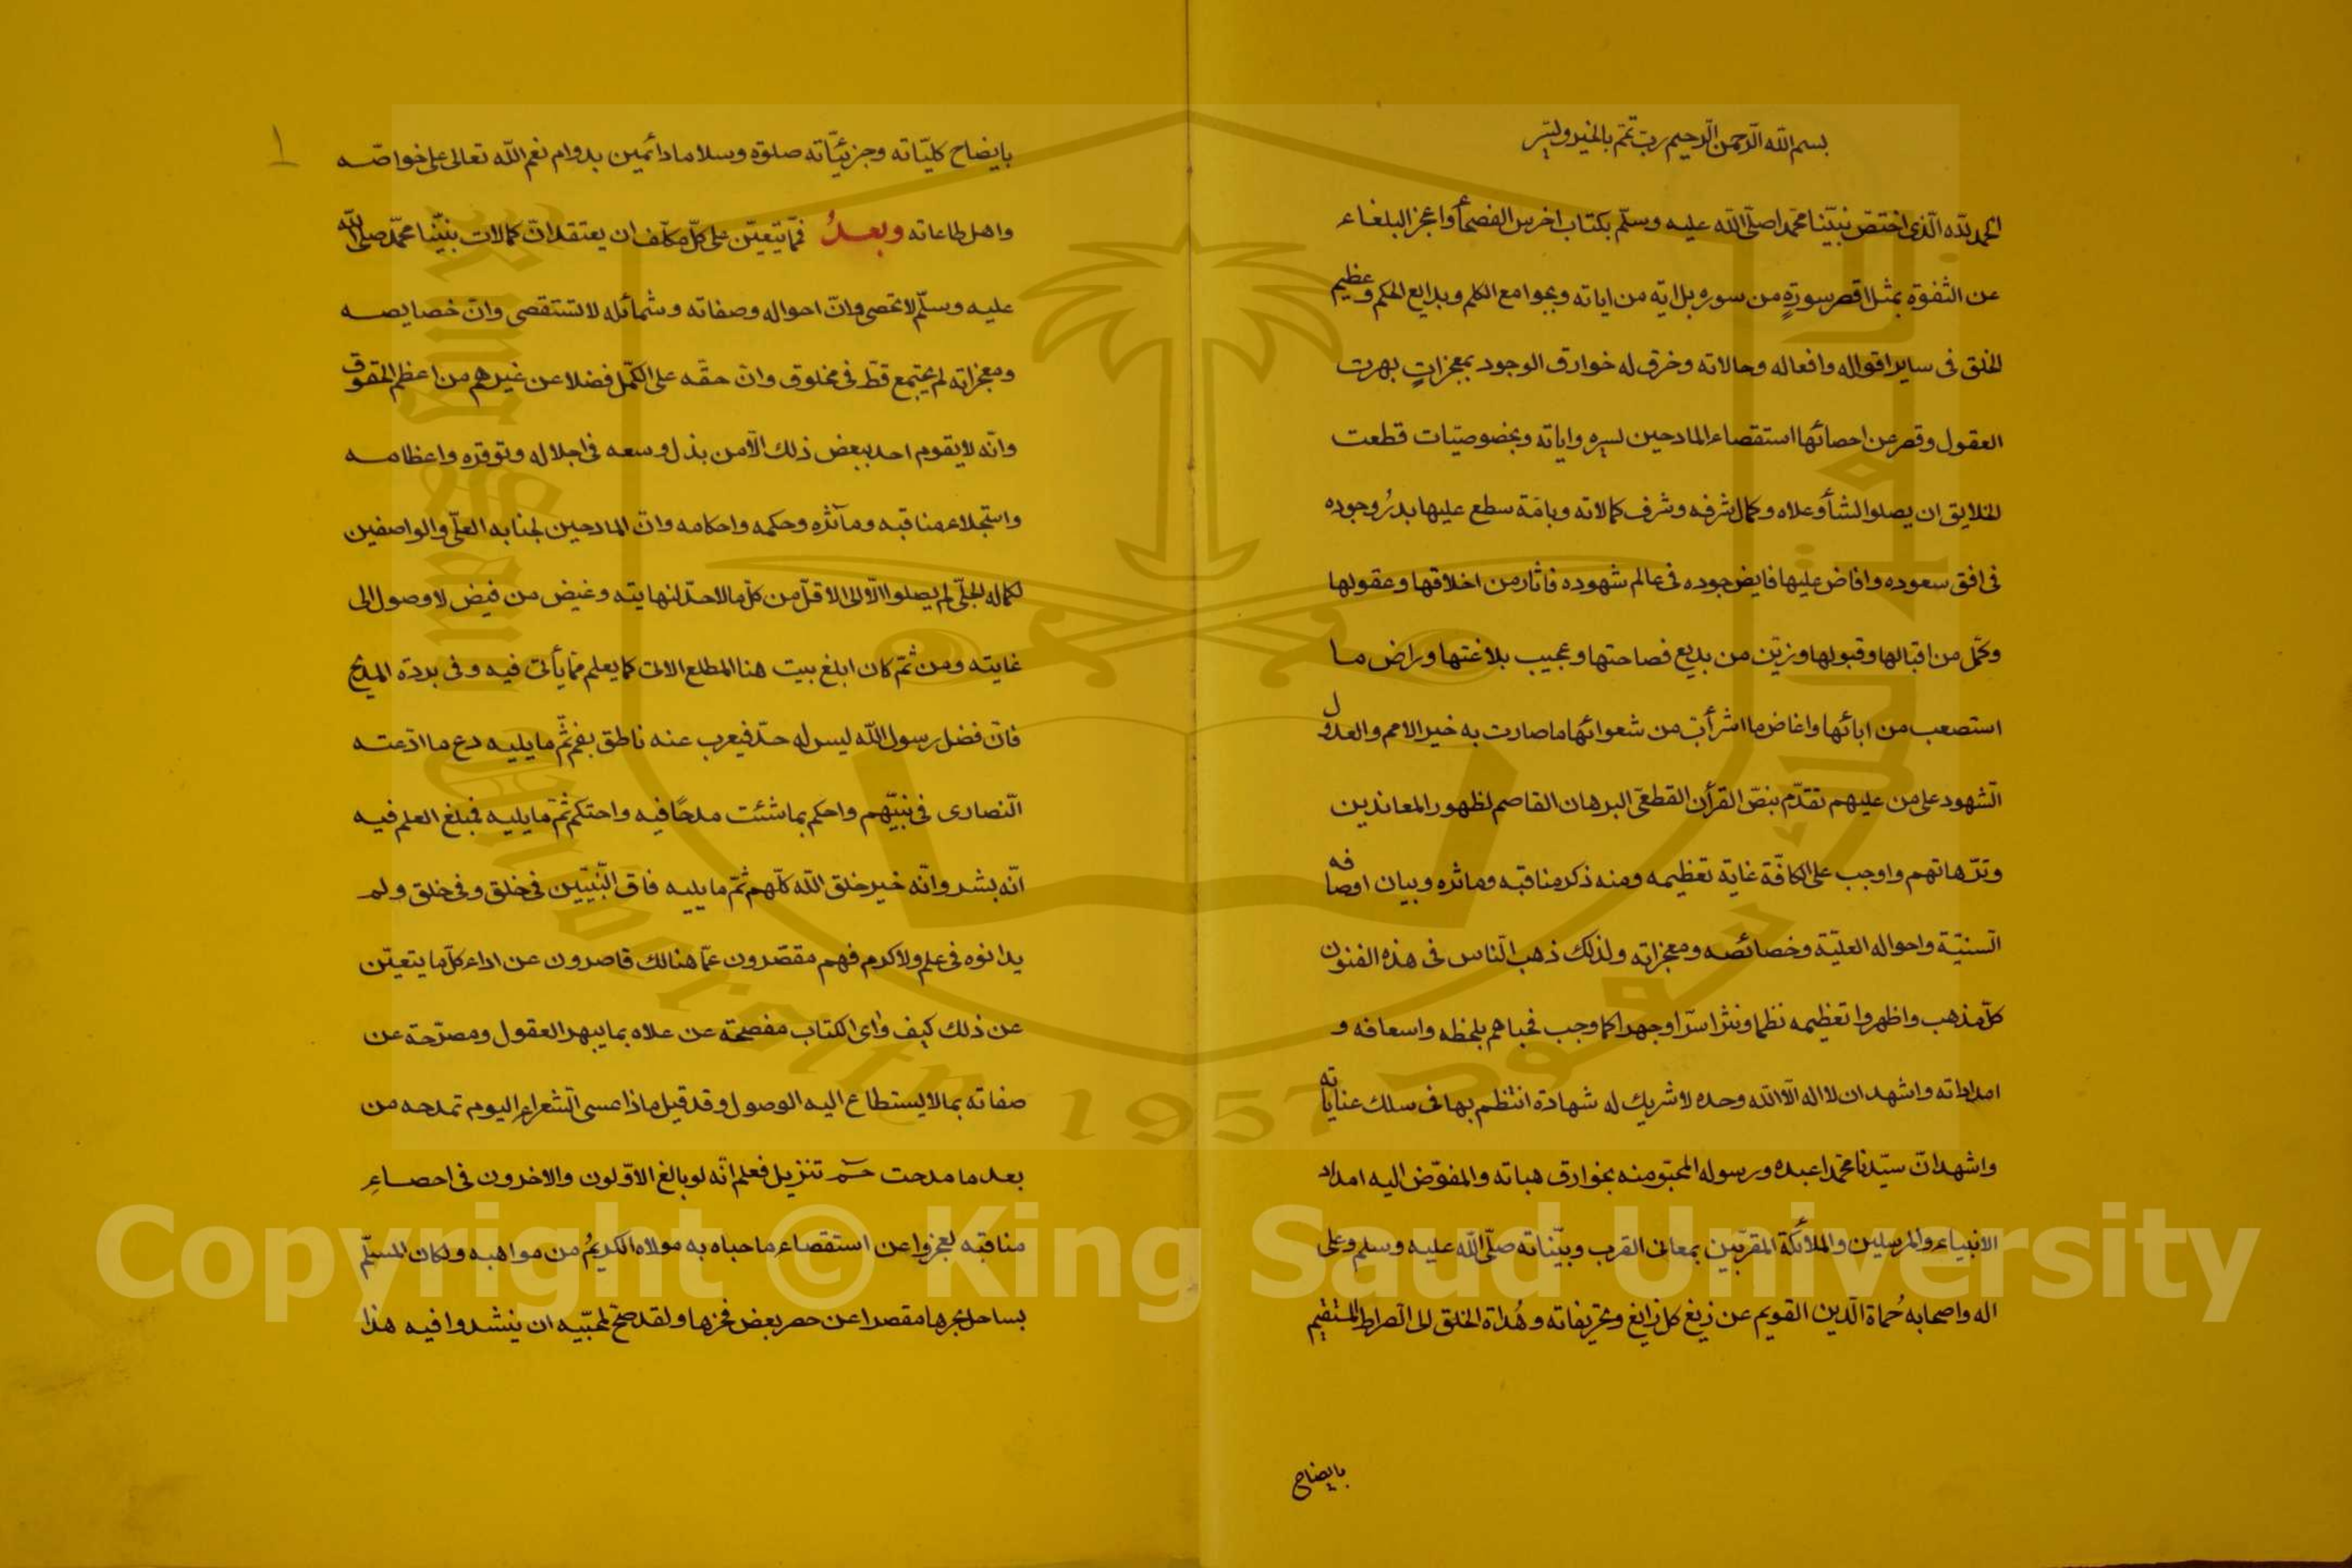 بسم الله الرحمن الرحيم رب تمم بالخير وليسر
الحمد لله الذي اختص نبينا محمدا صلى الله عليه وسلم بكتاب اخرس الفصحأ واعجز البلغاء
عن التفوه بمثل اقصر سورة من سوره بل اية من اياته وبجوامع الكلم وبدايع الحكم وعظيم
الخلق في ساير اقواله وافعاله وحالاته وخرق له خوارق الوجود بمعجزات بهرت
العقول وقصر عن احصائها استقصاء المادحين لسيره واياته وبخصوصيات قطعت
الخلايق ان يصلوا لشأو علاه وكمال شرفه وشرف كمالاته وبامة سطع عليها بدر وجوده
في افق سعوده وافاض عليها فايض جوده في عالم شهوده فاثار من اخلاقها وعقولها
وكمل من اقبالها وقبولها وزين من بديع فصاحتها وعجيب بلاغتها وراض ما
استصعب من ابائها واغاض ما اشرأب من شعوائها ما صارت به خير الامم والعدول
الشهود على من عليهم تقدم بنص القرأن القطعي البرهان القاصم لظهور المعاندين
وترهاتهم واوجب على الكافة غاية تعظيمه ومنه ذكر مناقبه وماثره وبيان اوصافه
السنية واحواله العلية وخصائصه ومعجزاته ولذلك ذهب الناس في هذه الفنون
كل مذهب واظهروا تعظيمه نظما ونثرا سرا وجهرا كما وجب فحباهم بلحظه واسعافه و
امداداته واشهد ان لا اله الا الله وحده لا شريك له شهادة انتظم بها في سلك عناياته
واشهد ان سيدنا محمدا عبده ورسوله المحبو منه بخوارق هباته والمفوض اليه امداد
الانبياء والمرسلين والملائكة المقربين بمعاني القرب وبيناته صلى الله عليه وسلم وعلى
اله واصحابه حماة الدين القويم عن زيغ كل زايغ وتحريفاته وهداة الخلق الى الصراط المستقيم
بايضاح
بايضاح كلياته وجزئياته صلوة وسلاما دائمين بدوام نعم الله تعالى على خواصه
واهل طاعاته وبعد فمما يتعين على كل مكلف ان يعتقد ان كمالات نبينا محمد صلى الله
عليه وسلم لا تحصى وان احواله وصفاته وشمائله لا تستقصى وان خصايصه
ومعجزاته لم يجتمع قط في مخلوق وان حقه على الكمل فضلا عن غيرهم من اعظم الحقوق
وانه لا يقوم احد ببعض ذلك الا من بذل وسعه في اجلاله وتوقره واعظامه
واستجلاء مناقبه ومآثره وحكمه واحكامه وان المادحين لجنابه العلي والواصفين
لكماله الجلي لم يصلوا الا الى الاقل من كل ما لا حد لنهايته وغيض من فيض لا وصول الى
غايته ومن ثم كان ابلغ بيت هنا المطلع الاتي كما يعلم مما يأتي فيه وفي بردة المديح
فان فضل رسول الله ليس له حد فيعرب عنه ناطق بفم ثم ما يليه دع ما ادعته
النصارى في نبيهم واحكم بما شئت مدحا فيه واحتكم ثم ما يليه فمبلغ العلم فيه
انه بشر وانه خير خلق الله كلهم ثم ما يليه فاق النبيين في خلق وفي خلق ولم
يدانوه في علم ولا كرم فهم مقصرون عما هنالك قاصرون عن اداء كل ما يتعين
عن ذلك كيف وآى الكتاب مفصحة عن علاه بما يبهر العقول ومصرحة عن
صفاته بما لا يستطاع اليه الوصول وقد قيل ماذا عسى الشعراء اليوم تمدحه من
بعد ما مدحت حم تنزيل فعلم انه لو بالغ الاولون والاخرون في احصاء
مناقبه لعجزوا عن استقصاء ما حباه به مولاه الكريم من مواهبه ولكان المسلم
بساحل بحرها مقصرا عن حصر بعض فخرها ولقد صح لمحبيه ان ينشدوا فيه هذا
١
King Saud University
1957
Copyright © King Saud University